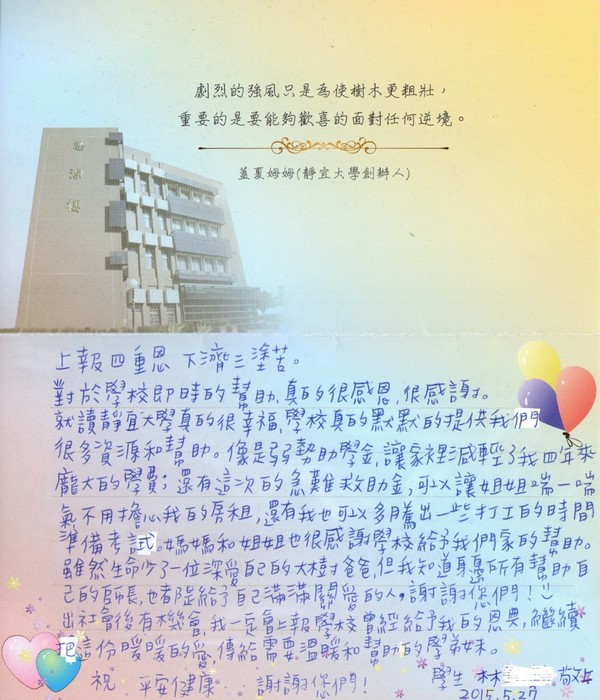 劇烈的強風只是為使樹木更粗壯，
重要的是要能夠歡喜的面對任何逆境。
蓋夏姆姆(靜宜大學創辦人)
上報四重恩 下濟三塗苦。
對於學校即時的幫助,真的很感恩,很感謝。
就讀靜宜大學真的很幸福,學校真的默默的提供我們
很多資源和幫助。像是弱勢助學金,讓家裡減輕了我四年來
龐大的學費;還有這次的急難救助金,可以讓姐姐喘一喘
氣不用擔心我的房租,還有我也可以多騰出一些打工的時間
準備考試。媽媽和姐姐也很感謝學校給予我們家的幫助。
雖然生命少了一位深愛自己的大樹爸爸,但我知道身邊所有幫助自
己的師長,也都是給予自己滿滿關愛的人,謝謝您們!:)
出社會後有機會,我一定會上報學校曾經給予我的恩典,繼續
把這份暖暖的愛,傳給需要溫暖和幫助的學弟妹。
祝 平安健康 謝謝您們! 學生 林 敬上
2015.5.27